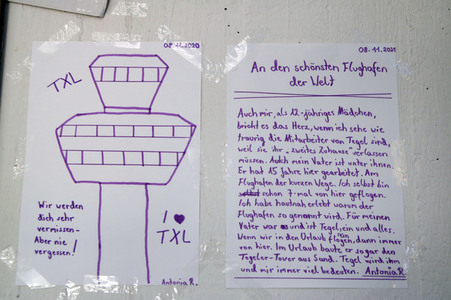 08.11.2020
TXL
Wir werden
dich sehr
vermissen-
Aber nie
vergessen!
I ♥
TXL
Antonia R.
08.11.2020
An den schönsten Flughafen
der Welt
Auch mir, als 12-jähriges Mädchen,
bricht es das Herz, wenn ich sehe wie
traurig die Mitarbeiter von Tegel sind,
weil sie ihr „zweites Zuhause" verlassen
müssen. Auch mein Vater ist unter ihnen.
Er hat 15 Jahre hier gearbeitet. Am
Flughafen der kurzen Wege. Ich selbst bin
schon 7-mal von hier geflogen.
Ich habe hautnah erlebt warum der
Flughafen so genannt wird. Für meinen
Vater war und ist Tegel, ein und alles.
Wenn wir in den Urlaub flogen, dann immer
von hier. Im Urlaub baute er sogar den
Tegeler-Tower aus Sand. Tegel wird ihm
und mir immer viel bedeuten. Antonia R.